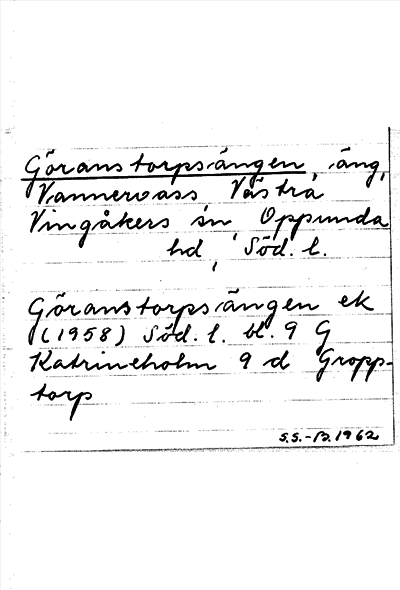 Göranstorpsängen, äng,
Vannevass Västra
Vingåkers sn Oppunda
hd, Söd. l.
Göranstorpsängen ek
(1958) Söd. l. bl. 9 G
Katrineholm 9 d Gropp-
torp
S.S.-B. 1962